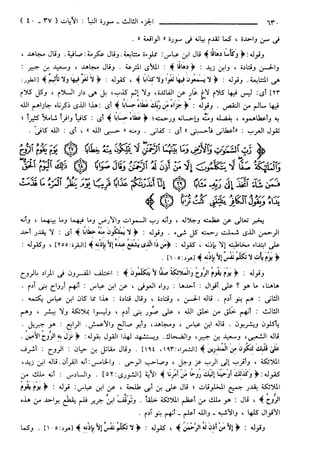 ٦٣٠ الجزء الثالث - سورة النبأ : الآيات (٣٧ - ٤٠)
في سن واحدة ، كما تقدم بيانه في سورة «الواقعة» .
وقوله : ﴿وَكَأْسًا دِهَاقًا﴾ قال ابن عباس : مملوءة متتابعة. وقال عكرمة : صافية. وقال مجاهد ،
والحسن وقتادة ، وابن زيد : ﴿دِهَاقًا﴾ : الملأى المترعة . وقال مجاهد وسعيد بن جبير :
هي المتتابعة. وقوله : ﴿لَا يَسْمَعُونَ فِيهَا لَغْوًا وَلَا كِذَّابًا﴾ ، كقوله : ﴿لَا لَغْوٌ فِيهَا وَلَا تَأْثِيمٌ﴾ [الطور:
٢٣] أي : ليس فيها كلام لاغ عَارٍ عن الفائدة ، ولا إثم كذب ، بل هي دار السلام ، وكل كلام
فيها سالم من النقص . وقوله : ﴿جَزَاءً مِنْ رَبِّكَ عَطَاءً حِسَابًا﴾ ، أي : هذا الذي ذكرناه جازاهم الله
به وأعطاهموه ، بفضله ومنّه وإحسانه ورحمته ؛ ﴿عَطَاءً حِسَابًا﴾ أي : كافياً وافراً شاملاً كثيراً ؛
تقول العرب : «أعطاني فأحسبني» أي : كفاني . ومنه «حسبي الله» ، أي : الله كافيّ .
﴿رَبِّ السَّمَاوَاتِ وَالْأَرْضِ وَمَا بَيْنَهُمَا الرَّحْمَٰنِ لَا يَمْلِكُونَ مِنْهُ خِطَابًا ۝ يَوْمَ يَقُومُ الرُّوحُ
وَالْمَلَائِكَةُ صَفًّا لَا يَتَكَلَّمُونَ إِلَّا مَنْ أَذِنَ لَهُ الرَّحْمَٰنُ وَقَالَ صَوَابًا ۝ ذَٰلِكَ الْيَوْمُ الْحَقُّ
فَمَنْ شَاءَ اتَّخَذَ إِلَىٰ رَبِّهِ مَآبًا ۝ إِنَّا أَنْذَرْنَاكُمْ عَذَابًا قَرِيبًا يَوْمَ يَنْظُرُ الْمَرْءُ مَا قَدَّمَتْ
يَدَاهُ وَيَقُولُ الْكَافِرُ يَا لَيْتَنِي كُنْتُ تُرَابًا ۝﴾
يخبر تعالى عن عظمته وجلاله ، وأنه رب السموات والأرض وما فيهما وما بينهما ، وأنه
الرحمن الذي شملت رحمته كل شيء . وقوله : ﴿لَا يَمْلِكُونَ مِنْهُ خِطَابًا﴾ أي : لا يقدر أحد
على ابتداء مخاطبته إلا بإذنه ، كقوله : ﴿مَنْ ذَا الَّذِي يَشْفَعُ عِنْدَهُ إِلَّا بِإِذْنِهِ﴾ [البقرة: ٢٥٥] ، وكقوله :
﴿يَوْمَ يَأْتِ لَا تَكَلَّمُ نَفْسٌ إِلَّا بِإِذْنِهِ﴾ [هود: ١٠٥] .
وقوله : ﴿يَوْمَ يَقُومُ الرُّوحُ وَالْمَلَائِكَةُ صَفًّا لَا يَتَكَلَّمُونَ﴾ : اختلف المفسرون في المراد بالروح
هاهنا ، ما هو ؟ على أقوال : أحدها : رواه العوفي ، عن ابن عباس : أنهم أرواح بني آدم .
الثاني : هم بنو آدم . قاله الحسن ، وقتادة ، وقال قتادة : هذا مما كان ابن عباس يكتمه .
الثالث : أنهم خلق من خلق الله ، على صُوَر بني آدم ، وليسوا بملائكة ولا ببشر ، وهم
يأكلون ويشربون . قاله ابن عباس ، ومجاهد ، وأبو صالح والأعمش. الرابع : هو جبريل .
قاله الشعبي ، وسعيد بن جبير ، والضحاك. ويستشهد لهذا القول بقوله : ﴿نَزَلَ بِهِ الرُّوحُ الْأَمِينُ .
عَلَىٰ قَلْبِكَ لِتَكُونَ مِنَ الْمُنْذِرِينَ﴾ [الشعراء: ١٩٣، ١٩٤] . وقال مقاتل بن حيان : الروح : أشرف
الملائكة ، وأقرب إلى الرب عز وجل ، وصاحب الوحي . والخامس : أنه القرآن. قاله ابن زيد ،
كقوله : ﴿وَكَذَٰلِكَ أَوْحَيْنَا إِلَيْكَ رُوحًا مِنْ أَمْرِنَا﴾ الآية [الشورى: ٥٢] . والسادس : أنه ملك من
الملائكة بقدر جميع المخلوقات ؛ قال علي بن أبي طلحة ، عن ابن عباس : قوله : ﴿يَوْمَ يَقُومُ
الرُّوحُ﴾ ، قال : هو ملك من أعظم الملائكة خلقاً . وتَوَقَّفَ ابنُ جرير فلم يقطع بواحد من هذه
الأقوال كلها ، والأشبه - والله أعلم - أنهم بنو آدم .
وقوله : ﴿إِلَّا مَنْ أَذِنَ لَهُ الرَّحْمَٰنُ﴾ ، كقوله : ﴿لَا تَكَلَّمُ نَفْسٌ إِلَّا بِإِذْنِهِ﴾ [هود: ١٠٥] . وكما